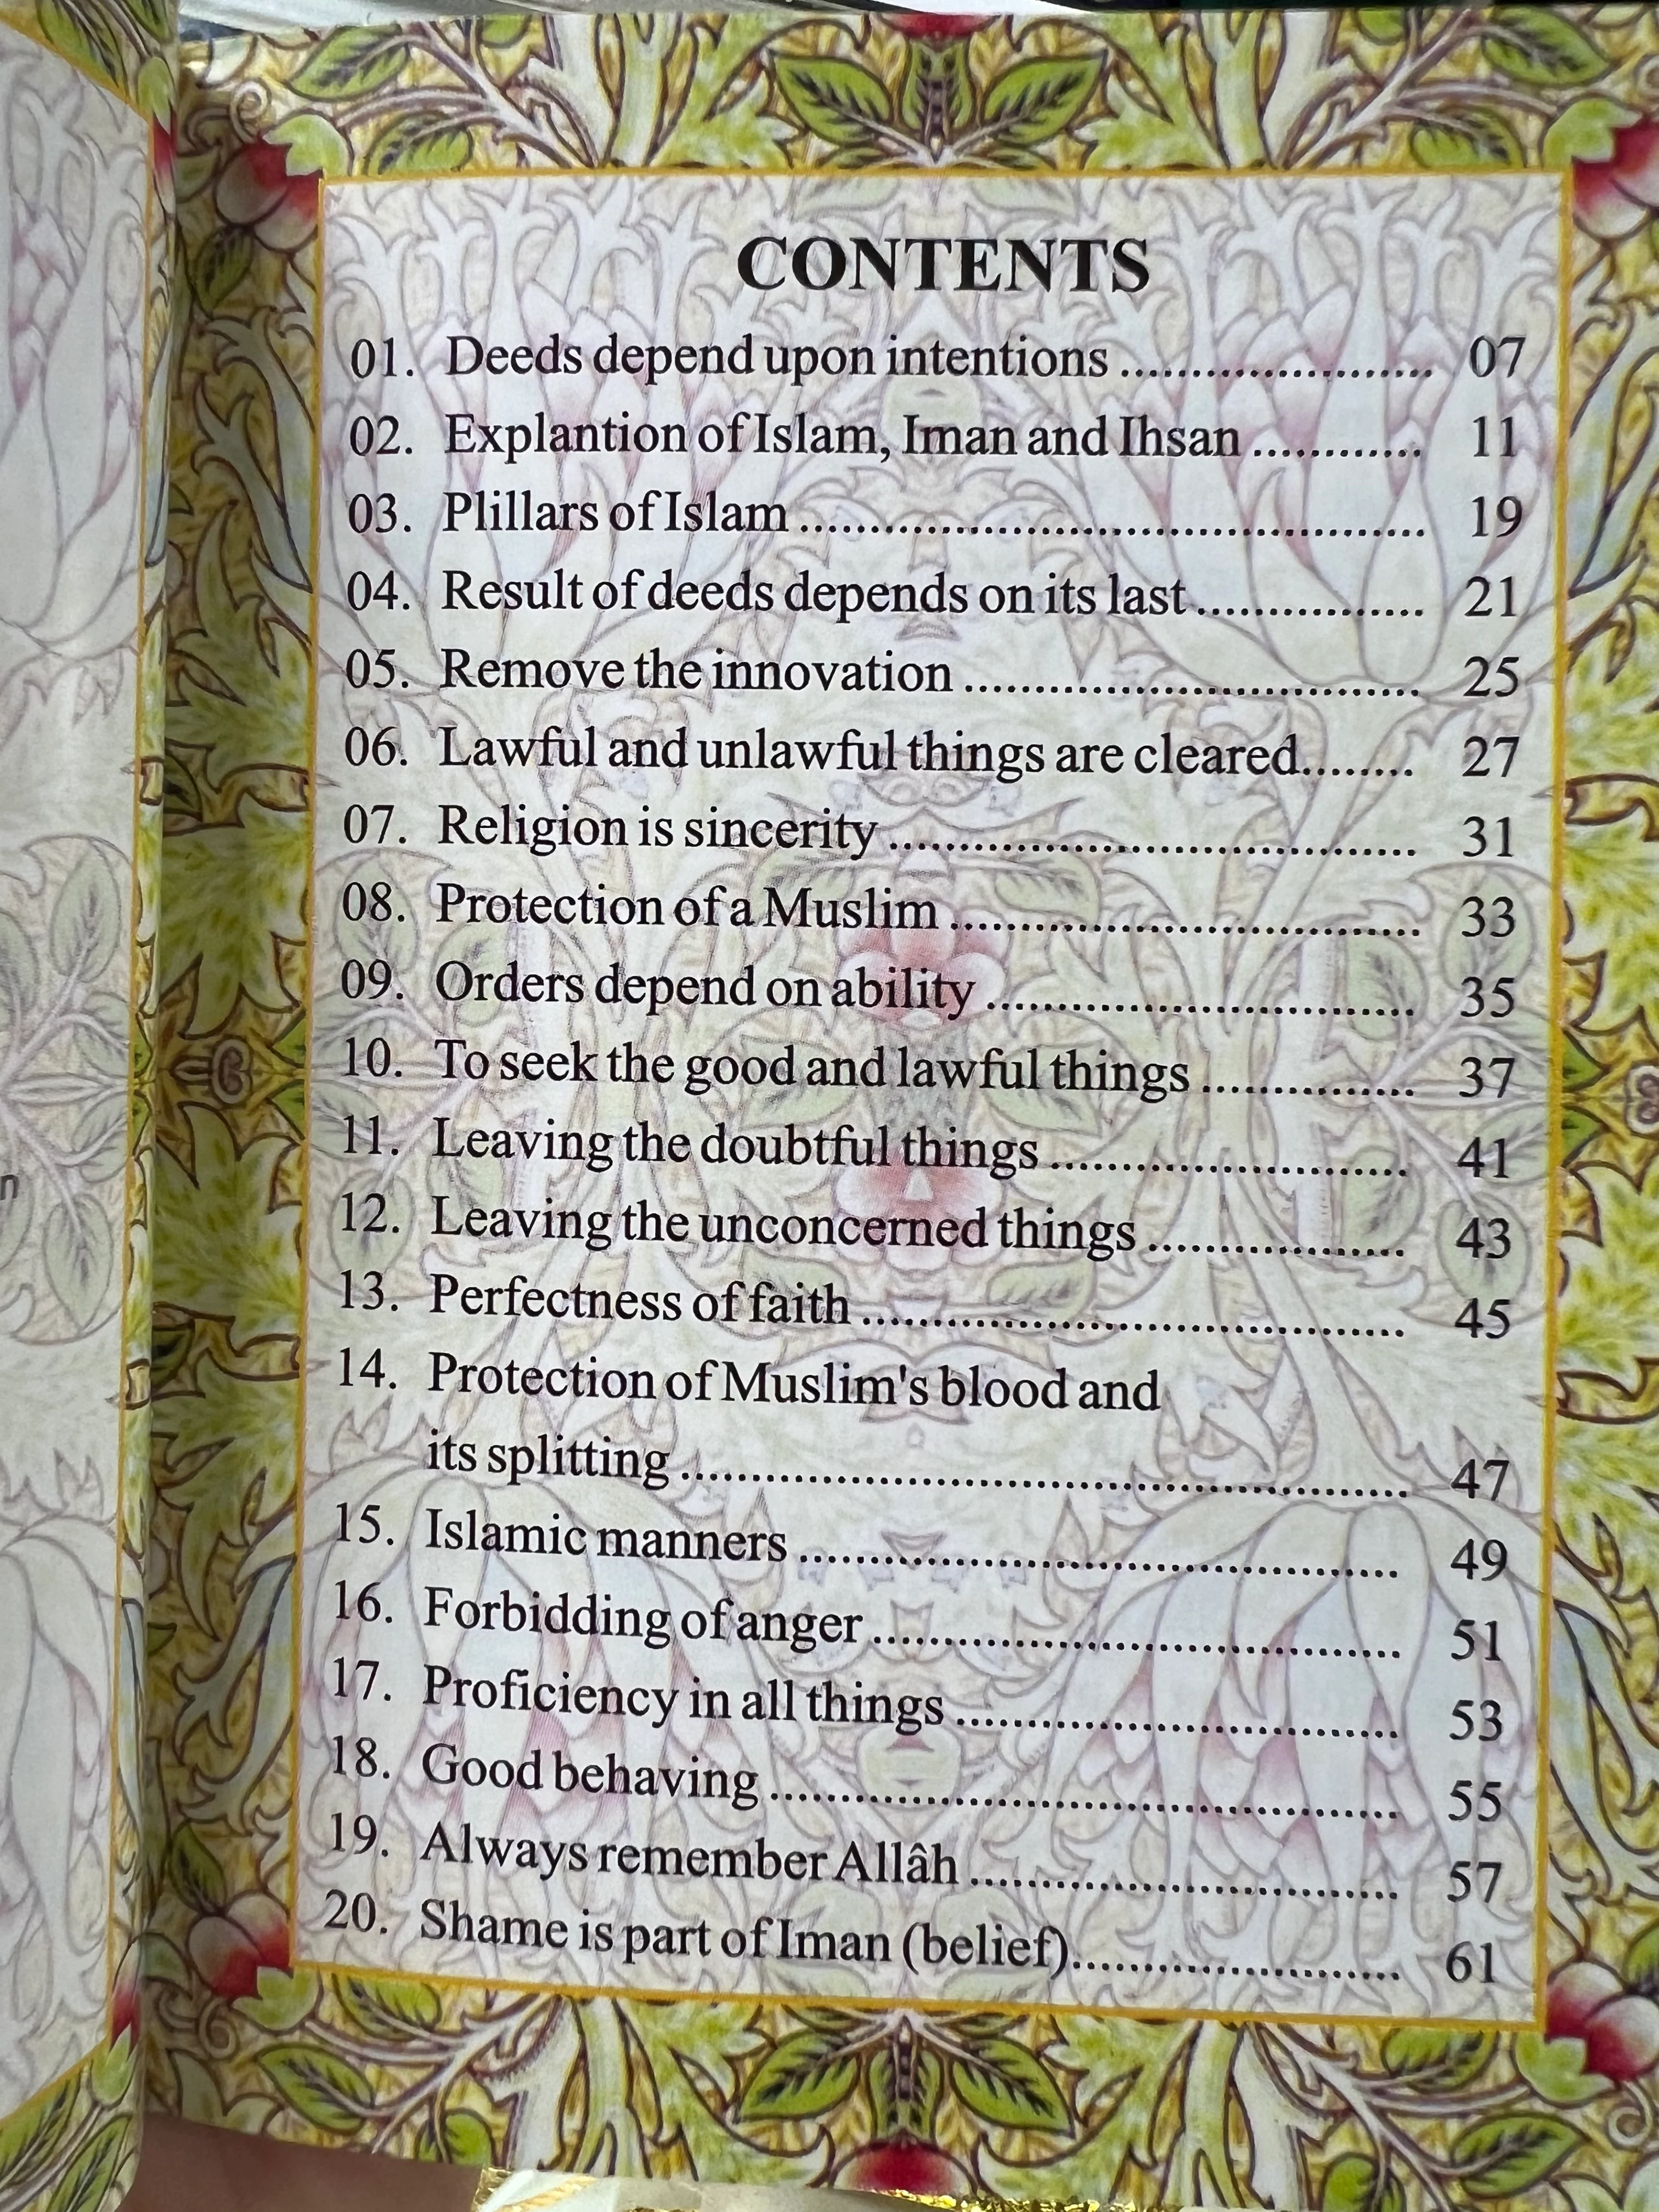 CONTENTS
01. Deeds depend upon intentions ...................... 07
02. Explantion of Islam, Iman and Ihsan ............ 11
03. Plillars of Islam ............................................. 19
04. Result of deeds depends on its last ................ 21
05. Remove the innovation ................................. 25
06. Lawful and unlawful things are cleared........ 27
07. Religion is sincerity ...................................... 31
08. Protection of a Muslim .................................. 33
09. Orders depend on ability ............................... 35
10. To seek the good and lawful things ............... 37
11. Leaving the doubtful things .......................... 41
12. Leaving the unconcerned things ................... 43
13. Perfectness of faith ....................................... 45
14. Protection of Muslim's blood and
its splitting .................................................... 47
15. Islamic manners ........................................... 49
16. Forbidding of anger ...................................... 51
17. Proficiency in all things ................................ 53
18. Good behaving ............................................. 55
19. Always remember Allâh ............................... 57
20. Shame is part of Iman (belief)....................... 61
n